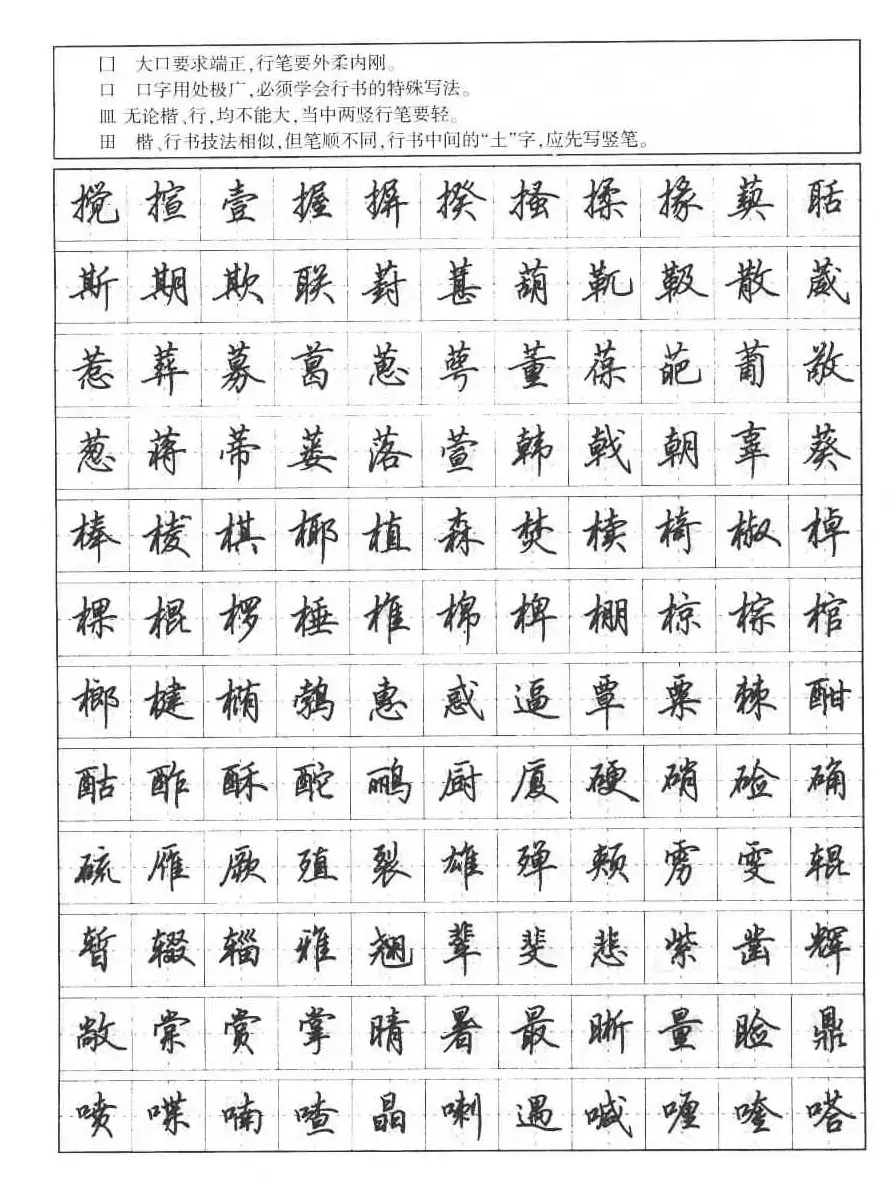 囗 大口要求端正,行笔要外柔内刚。
口 口字用处极广,必须学会行书的特殊写法。
皿 无论楷、行,均不能大,当中两竖行笔要轻。
田 楷、行书技法相似,但笔顺不同,行书中间的“土”字,应先写竖笔。
搅 揎 壹 握 摒 揆 搔 揉 掾 聒
斯 期 欺 联 葑 葚 葫 靰 靸 散 葳
惹 葬 募 葛 葸 萼 董 葆 葩 葡 敬
葱 蒋 蒂 蒌 落 萱 韩 戟 朝 辜 葵
棒 棱 棋 椰 植 森 焚 椟 椅 椒 棹
棵 棍 椤 棰 椎 棉 椑 棚 椋 棕 棺
榔 楗 椭 鹁 惠 惑 逼 覃 粟 棘 酣
酤 酢 酥 酡 鹂 厨 厦 硬 硝 硷 确
硫 雁 厥 殖 裂 雄 殚 颊 雳 雯 辊
暂 辍 辎 雅 翘 辈 斐 悲 紫 凿 辉
敞 棠 赏 掌 晴 暑 最 晰 量 睑 鼎
喷 喋 喃 喳 晶 喇 遇 喊 喱 喹 嗒